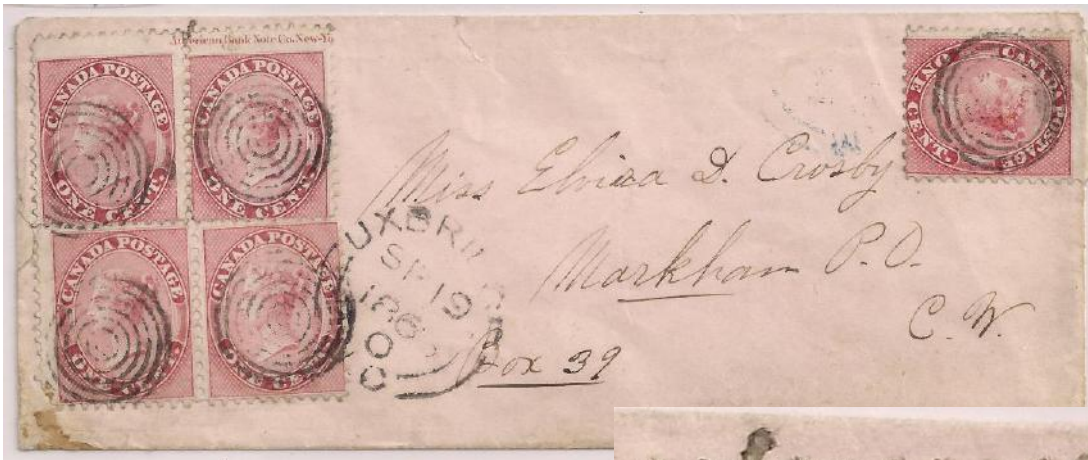 American Bank Note Co. New-Yo
CANADA POSTAGE
ONE CENT.
CANADA POSTAGE
ONE CENT.
CANADA POSTAGE
ONE CENT.
CANADA POSTAGE
ONE CENT.
CANADA POSTAGE
ONE CENT.
Miss Elvira D. Crosby
Markham P.O.
C. W.
Box 39
UXBRI
SP 19
186